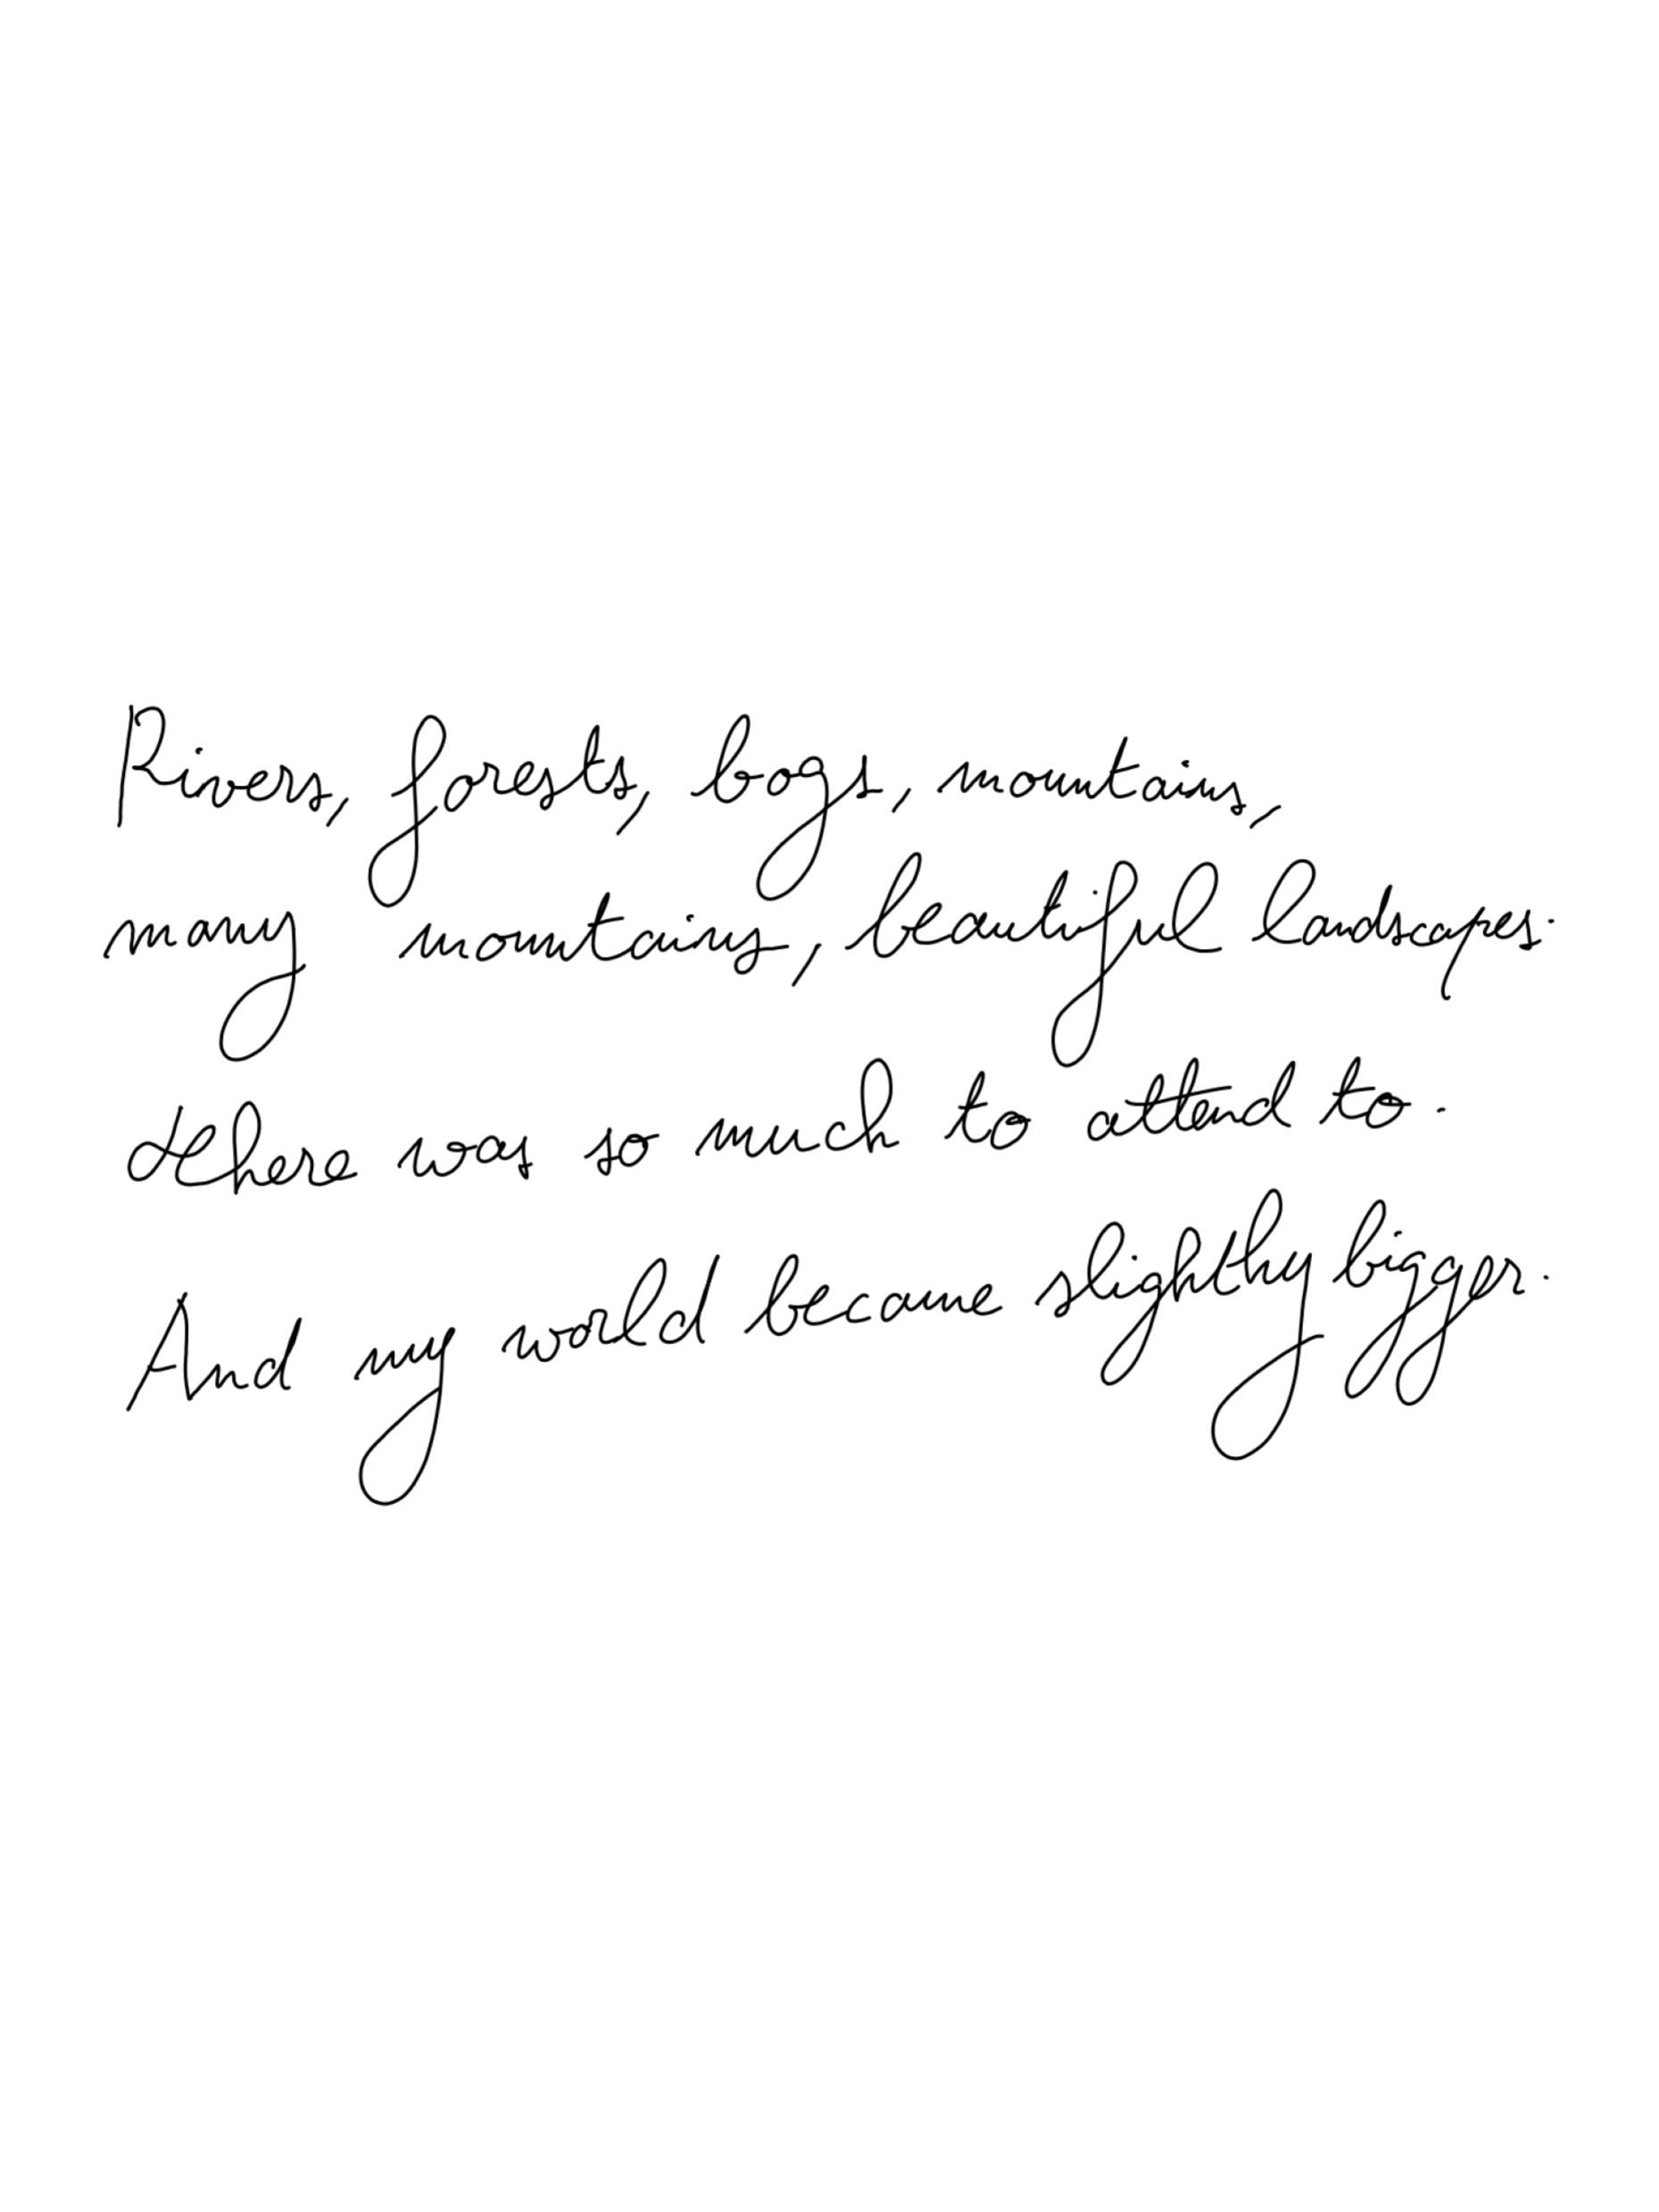 Rivers, forests, bogs, mountains,
many mountains, beautiful landscapes.
There was so much to attend to.
And my world became slightly bigger.